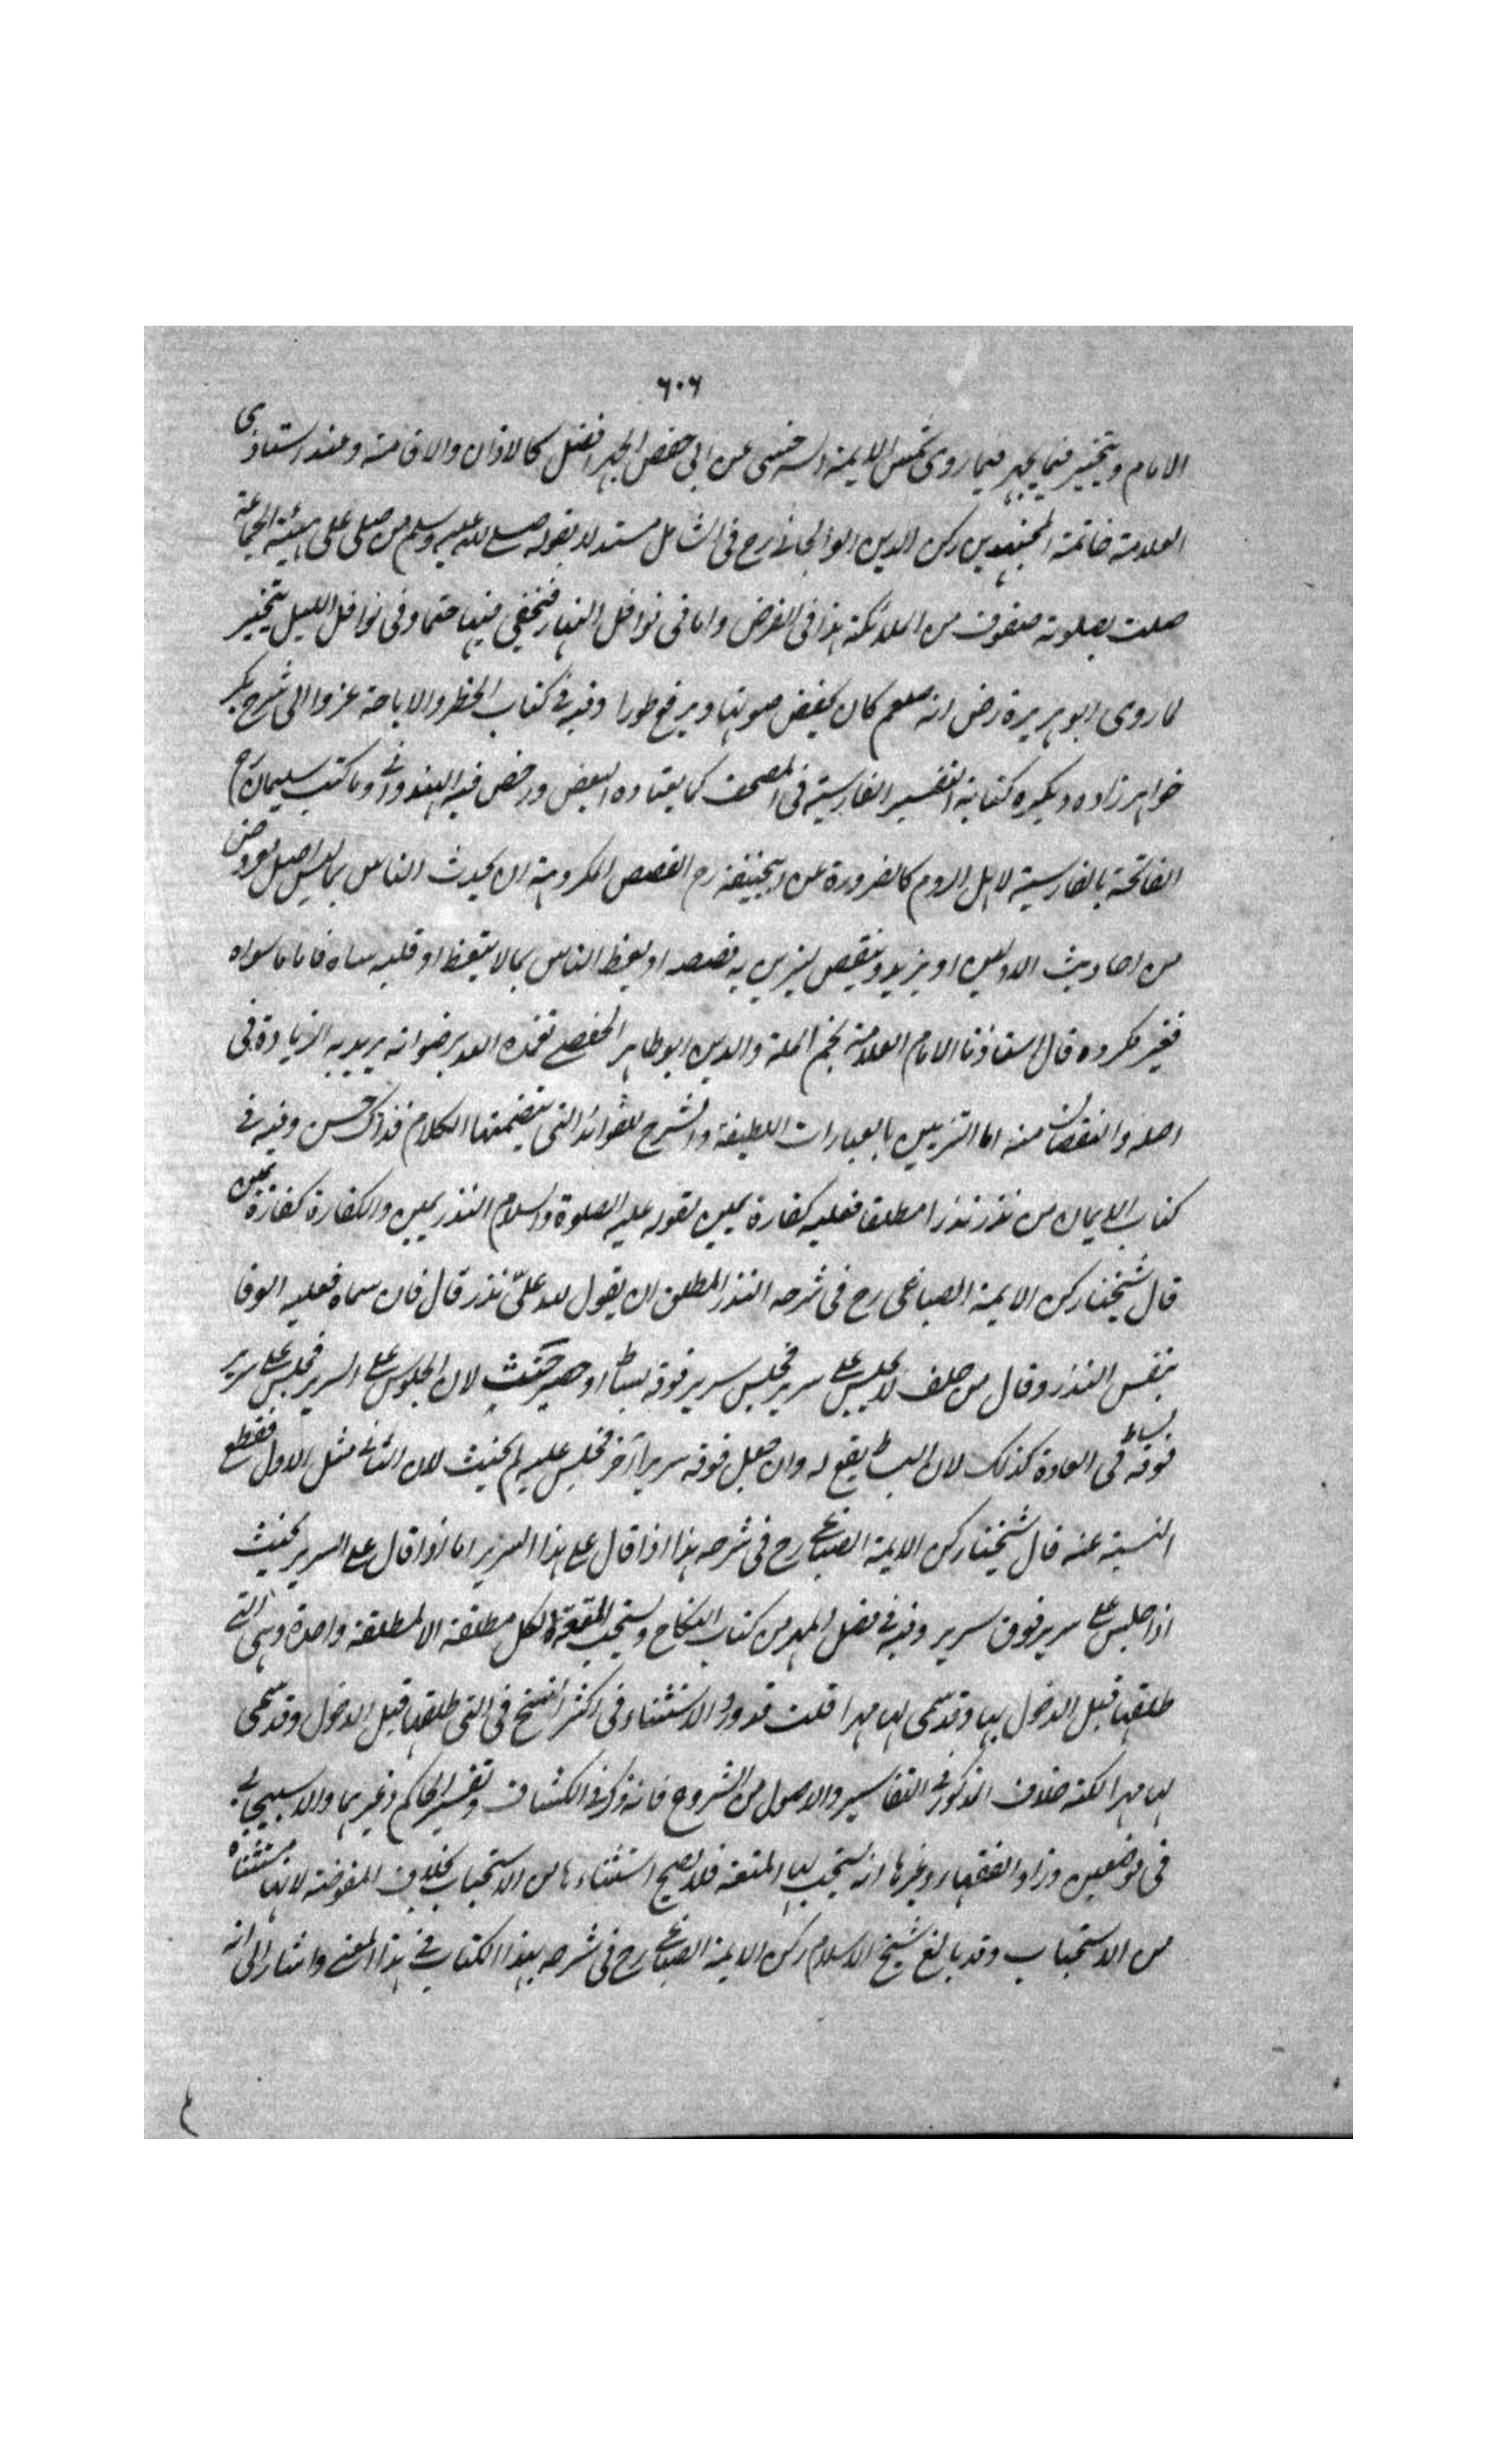 ٦٠٦
الامام ويتخير فيما يجهر فيما روى شمس الايمة السرخسى عن ابى حفص الجهر افضل كالاذان والاقامة وعند استاذى
العلامة خاتمة المجتهدين ركن الدين الوالجانى رح فى الشامل مستدلا بقوله صلى الله عليه وسلم من صلى على هيئة الجماعة
صلت بصلوته صفوف من الملائكة هذا فى الفرض واما فى نوافل النهار فيخفى فيها حتما وفى نوافل الليل يتخير
لما روى ابو هريرة رض انه صلعم كان يخفض صوتها ويرفع طورا وفيه فى كتاب الحظر والاباحة عزوا الى شرح بكر
خواهرزاده ويكره كتابة التفسير الفارسية فى المصحف كما يعتاده البعض ورخص فيه الهندوانى وما كتب سليمان رح
الفاتحة بالفارسية لاهل الروم كالضرورة عن ابيحنيفة رح القصص المكروهة ان يحدث الناس بما ليس اصل معروض
من احاديث الاولين او يزيد وينقص ليزين به قصصه او يعظ الناس بما لا يتعظ او قلبه ساه فاما ما سواه
فغير مكروه قال استاذنا الامام العلامة نجم الملة والدين ابو طاهر الحفصى تغمده الله برضوانه يريد به الزيادة فى
اصله والنقصان منه اما التزيين بالعبارات اللطيفة والشرح للفوائد التى يتضمنها الكلام فذاك حسن وفيه فى
كتاب الايمان من نذر نذرا مطلقا فعليه كفارة يمين لقوله عليه الصلوة والسلام النذر يمين والكفارة كفارة يمين
قال شيخنا ركن الايمة الصباغى رح فى شرحه النذر المطلق ان يقول لله علىّ نذر قال فان سماه فعليه الوفا
بنفس النذر وقال من حلف لا يجلس على سرير فجلس سرير فوقه بساط او حصير حنث لان الجلوس على السرير فجلس على سرير
فوقه بساط فى العادة كذلك لان البساط يقع له وان جعل فوقه سريرا آخر فجلس عليه لم يحنث لان الثانى مثل الاول فقطع
النسبة عنه قال شيخنا ركن الايمة الصباغى رح فى شرحه هذا اذا قال على هذا السرير اما اذا قال على السرير يحنث
اذا جلس على سرير فوق سرير وفيه فى فصل المهر من كتاب النكاح ويستحب المتعة لكل مطلقة الا لمطلقة واحدة وهى التى
طلقها قبل الدخول بها وقد سمى لها مهرا قلت قد ورد الاستثناء فى اكثر النسخ فى التى طلقها قبل الدخول وقد سمى
لها مهرا لكنه خلاف المذكور فى التفاسير والاصول من الشروح فانه ذكر فى الكشاف وتفسير الحاكم وغيرهما والاسبيجابى
فى موضعين وزاد الفقهاء وغيرها انه يستحب لها المتعة فلا يصح استثناءها من الاستحباب بخلاف المفوضة لانها مستثناة
من الاستحباب وقد بالغ شيخ الاسلام ركن الايمة الصباغى رح فى شرحه لهذا الكتاب فى هذا المعنى واشار الى انه